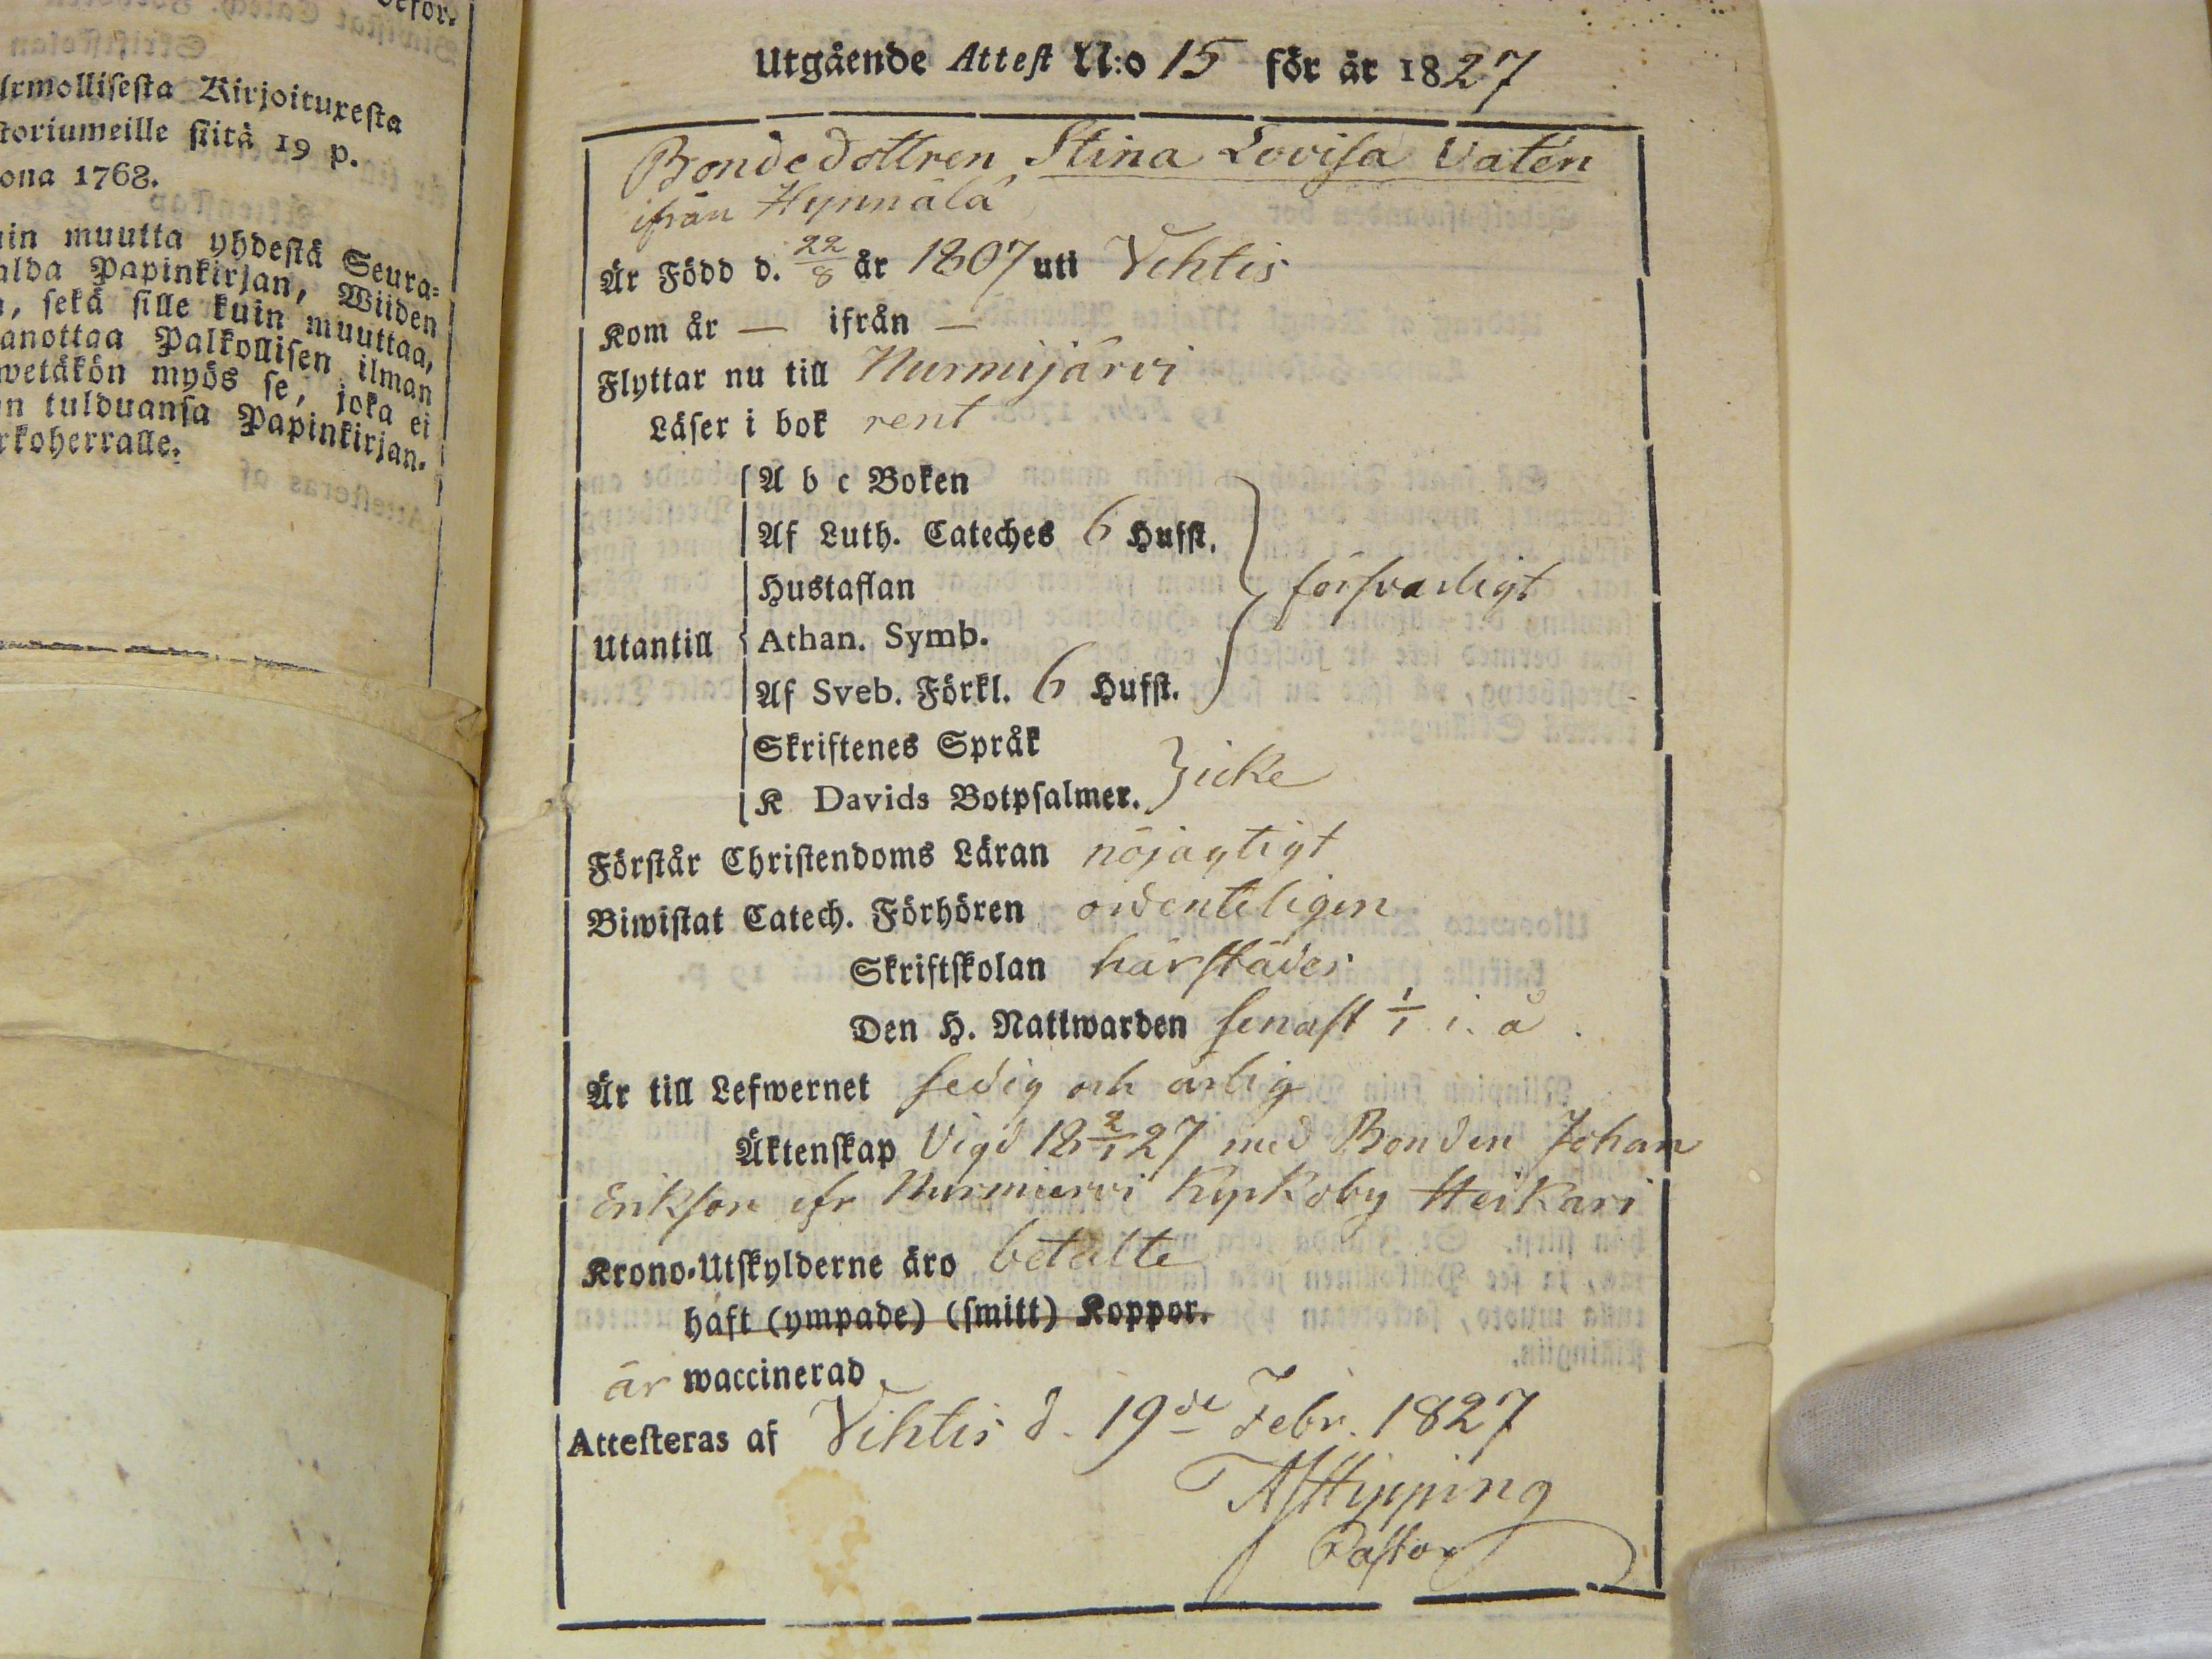 befor-
Armollisesta Kirjoituxesta
storiumeille siitä 19 p.
ona 1768.
in muutta yhdestä Seura-
alda Papinkirjan, Wiiden
, sekä sille kuin muuttaa,
anottaa Palkollisen ilman
wetäkön myös se, joka ei
n tulduansa Papinkirjan-
rkoherralle.
Utgående Attest N:o 15 för år 1827
Bondedottren Stina Lovisa Vatén
ifrån Hynnälä
Är Född d. 22/8 år 1807 uti Vihtis
Kom år — ifrån —
Flyttar nu till Nurmijärvi
Läser i bok rent
A b c Boken
Af Luth. Cateches 6 Hufst.
Hustaflan
försvarligt
Utantill Athan. Symb.
Af Sveb. Förkl. 6 Hufst.
Skriftenes Språk
K Davids Botpsalmer. icke
Förstår Christendoms Läran nöjagtigt
Biwistat Catech. Förhören ordenteligen
Skriftskolan härstädes
Den H. Nattwarden senast 1/1 i. å.
Är till Lefwernet sedig och ärlig
Äktenskap Vigd 18 2/1 27 med Bonden Johan
Erikson ifr Nurmiervi Kyrkoby Heikari
Krono-Utskylderne äro betalte
haft (ympade) (smitt) Koppor.
är waccinerad
Attesteras af Vihtis d. 19de Febr. 1827
AHipping
Pastor